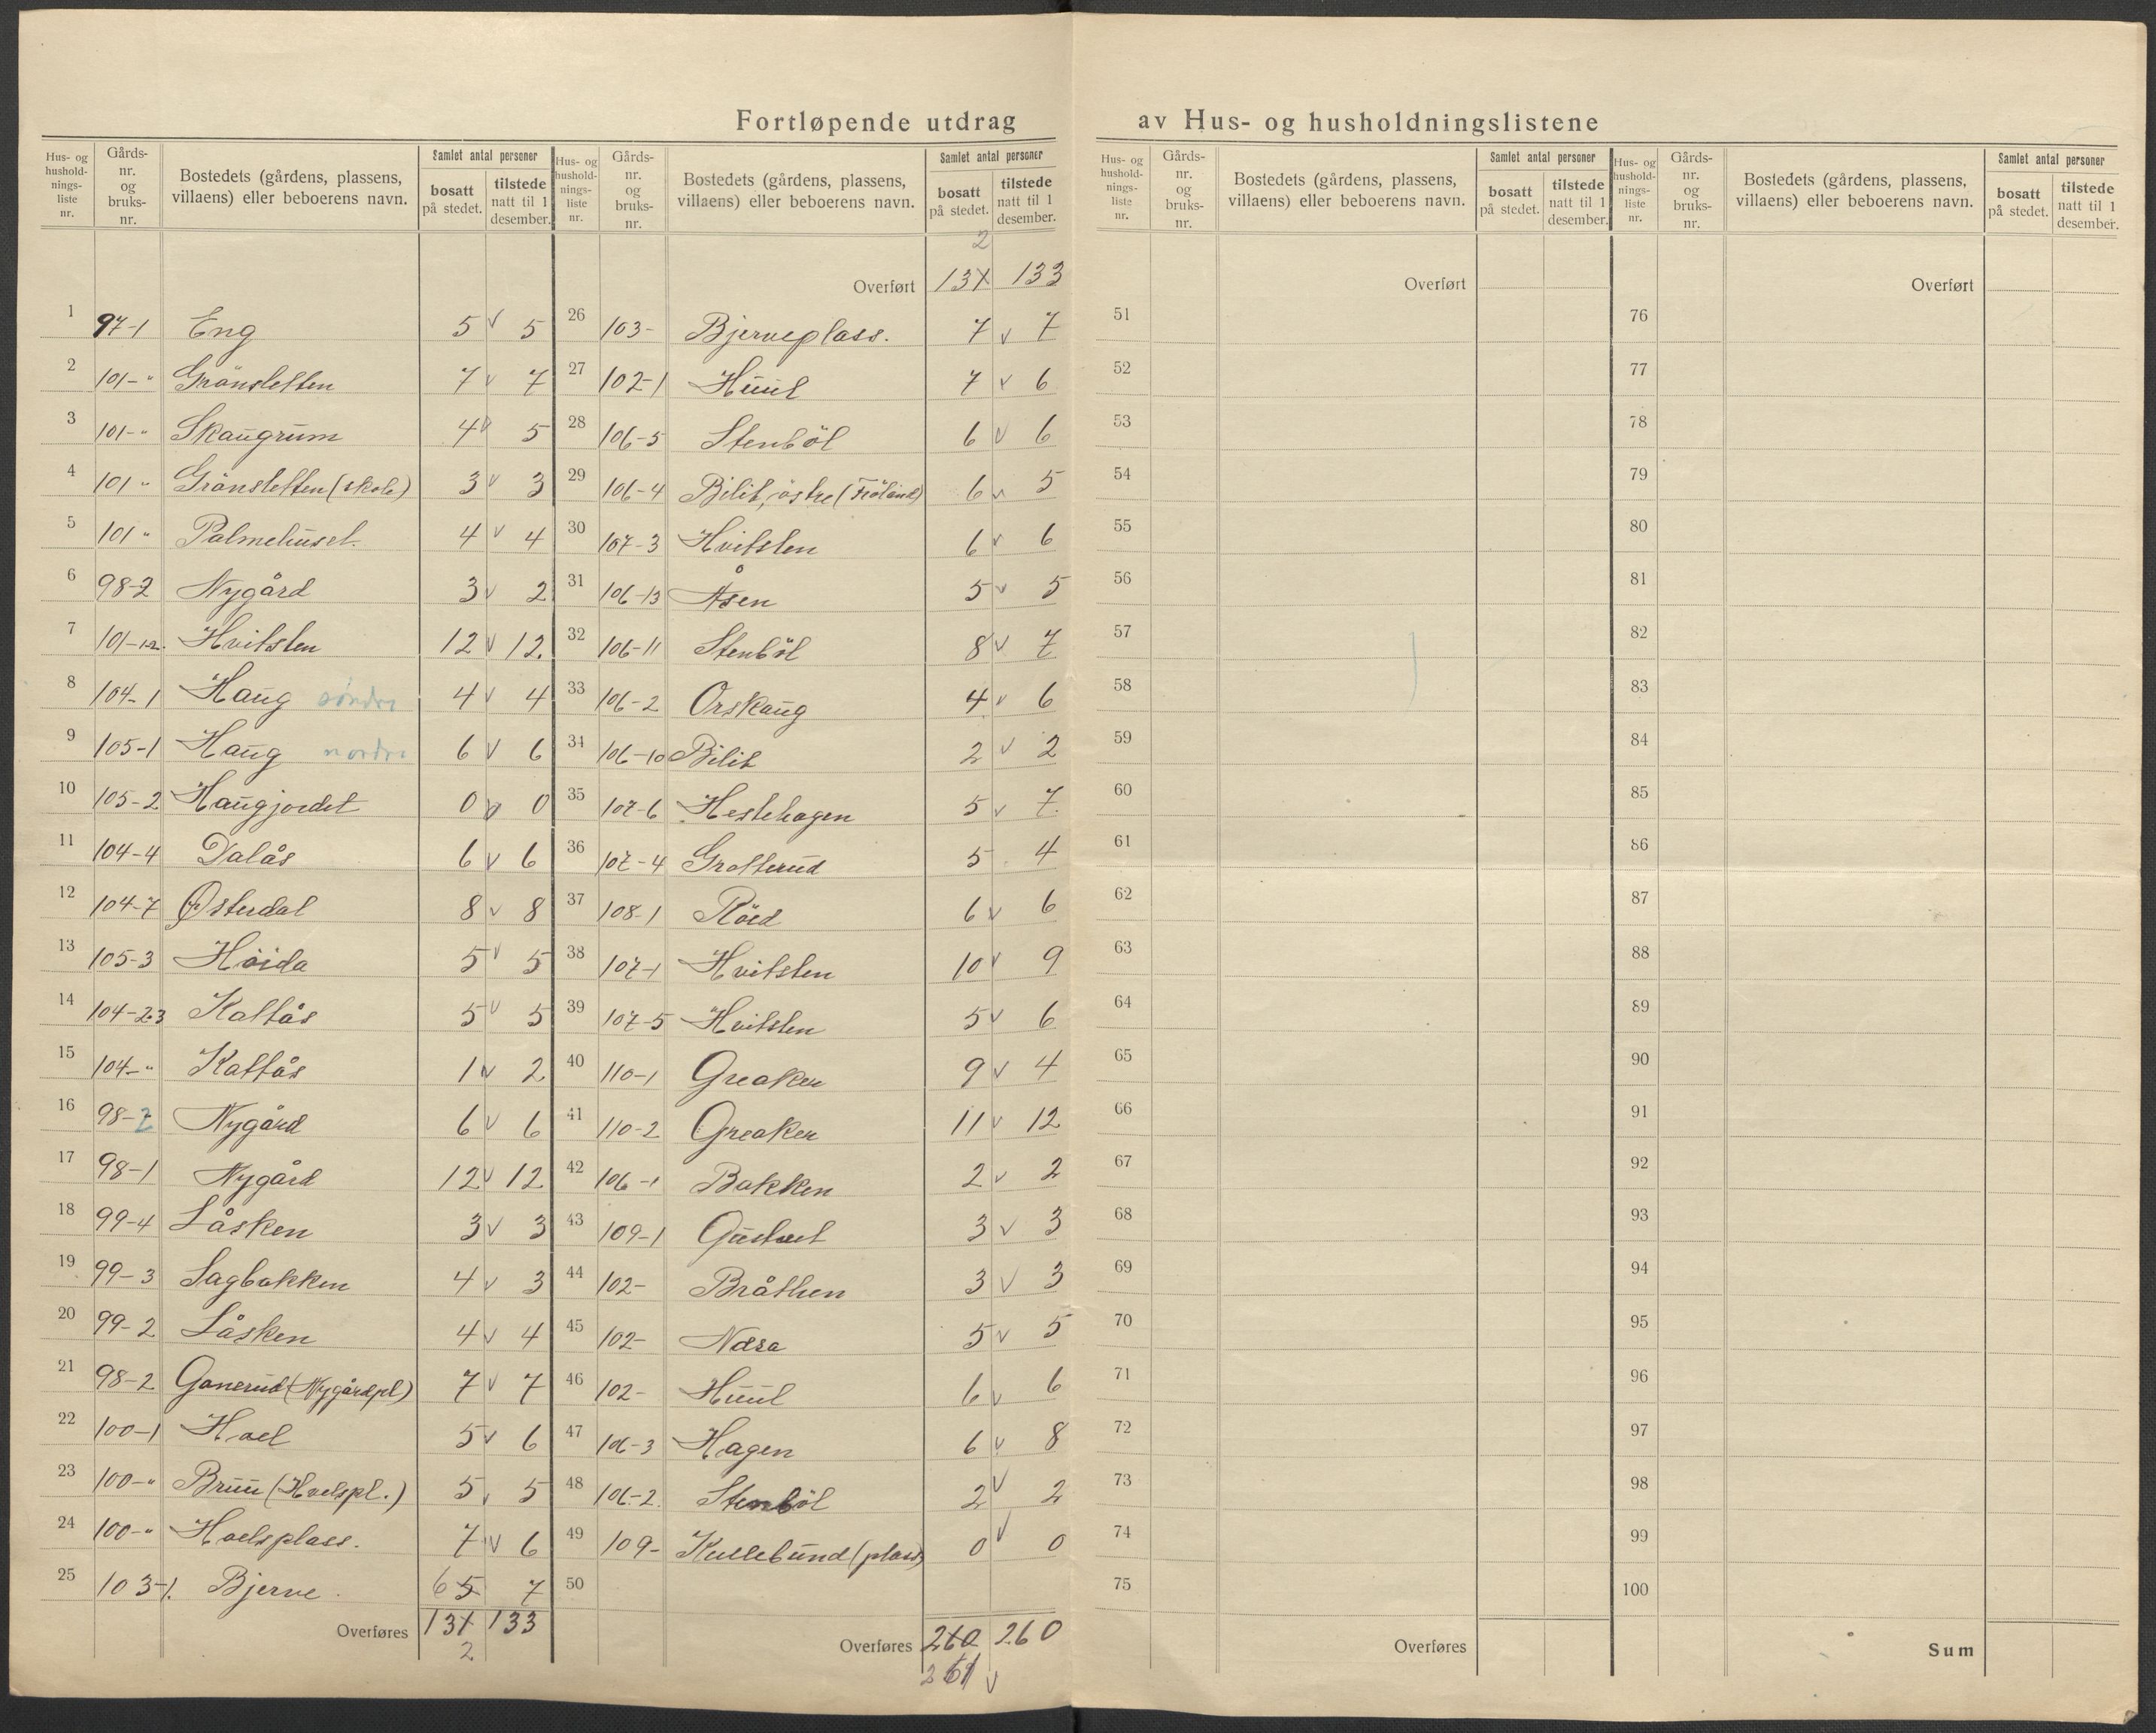 Fortløpende utdrag av Hus- og husholdningslistene
Hus- og husholdnings-liste nr. | Gårds-nr. og bruks-nr. | Bostedets (gårdens, plassens, villaens) eller beboerens navn. | Samlet antal personer | bosatt på stedet. | tilstede natt til 1 desember.
1 97-1 Eng 5 v 5
2 101-" Grönsletten 7 v 7
3 101-" Skaugrum 4 v 5
4 101 " Grönsletten (skole) 3 v 3
5 101 " Palmehuset. 4 v 4
6 98-2 Nygård 3 v 2
7 101-12. Hvitsten 12 v 12.
8 104-1 Haug søndre 4 v 4
9 105-1 Haug nordre 6 v 6
10 105-2 Haugjordet 0 v 0
11 104-4 Dalås 6 v 6
12 104-7 Østerdal 8 v 8
13 105-3 Höida 5 v 5
14 104-2.3 Kattås 5 v 5
15 104-" Kattås 1 v 2
16 98-2 Nygård 6 v 6
17 98-1 Nygård 12 v 12
18 99-4 Låsken 3 v 3
19 99-3 Sagbakken 4 v 3
20 99-2 Låsken 4 v 4
21 98-2 Ganerud (Nygårdpl) 7 v 7
22 100-1 Hoel 5 v 6
23 100-" Bruu (Hoelspl.) 5. 5
24 100-" Hoelsplass. 7 v 6
25 103-1. Bjerve. 6 5 7
Overføres 131 133
2
Hus- og husholdnings-liste nr. | Gårds-nr. og bruks-nr. | Bostedets (gårdens, plassens, villaens) eller beboerens navn. | Samlet antal personer | bosatt på stedet. | tilstede natt til 1 desember.
2
Overført 131 133
26 103- Bjerveplass. 7 v 7
27 102-1 Huul 7 v 6
28 106-5 Stenböl 6 v 6
29 106-4 Bilit, östre (Fröland) 6 v 5
30 107-3 Hvitsten 6 v 6
31 106-13 Åsen 5 v 5
32 106-11 Stenböl 8 v 7
33 106-2 Orskaug 4 v 6
34 106-10 Bilit 2 v 2
35 107-6 Hestehagen 5 v 7.
36 107-4 Grotterud 5 . 4
37 108-1 Röed 6 v 6
38 107-1 Hvitsten 10 v 9
39 107-5 Hvitsten 5 v 6
40 110-1 Greaker 9 v 4
41 110-2 Greaker 11 v 12
42 106-1 Bakken 2 v 2
43 109-1 3 v 3
44 102- Bråthen 3 v 3
45 102- Næra 5 v 5
46 102- Huul 6 v 6
47 106-3 Hagen 6 v 8
48 106-2. Stenböl 2 v 2
49 109- Kullebund (plass) 0 v 0
50
Overføres 260 260
261 v
Hus- og husholdnings-liste nr. | Gårds-nr. og bruks-nr. | Bostedets (gårdens, plassens, villaens) eller beboerens navn. | Samlet antal personer | bosatt på stedet. | tilstede natt til 1 desember.
Overført
51
52
53
54
55
56
57
58
59
60
61
62
63
64
65
66
67
68
69
70
71
72
73
74
75
Overføres
Hus- og husholdnings-liste nr. | Gårds-nr. og bruks-nr. | Bostedets (gårdens, plassens, villaens) eller beboerens navn. | Samlet antal personer | bosatt på stedet. | tilstede natt til 1 desember.
Overført
76
77
78
79
80
81
82
83
84
85
86
87
88
89
90
91
92
93
94
95
96
97
98
99
100
Sum